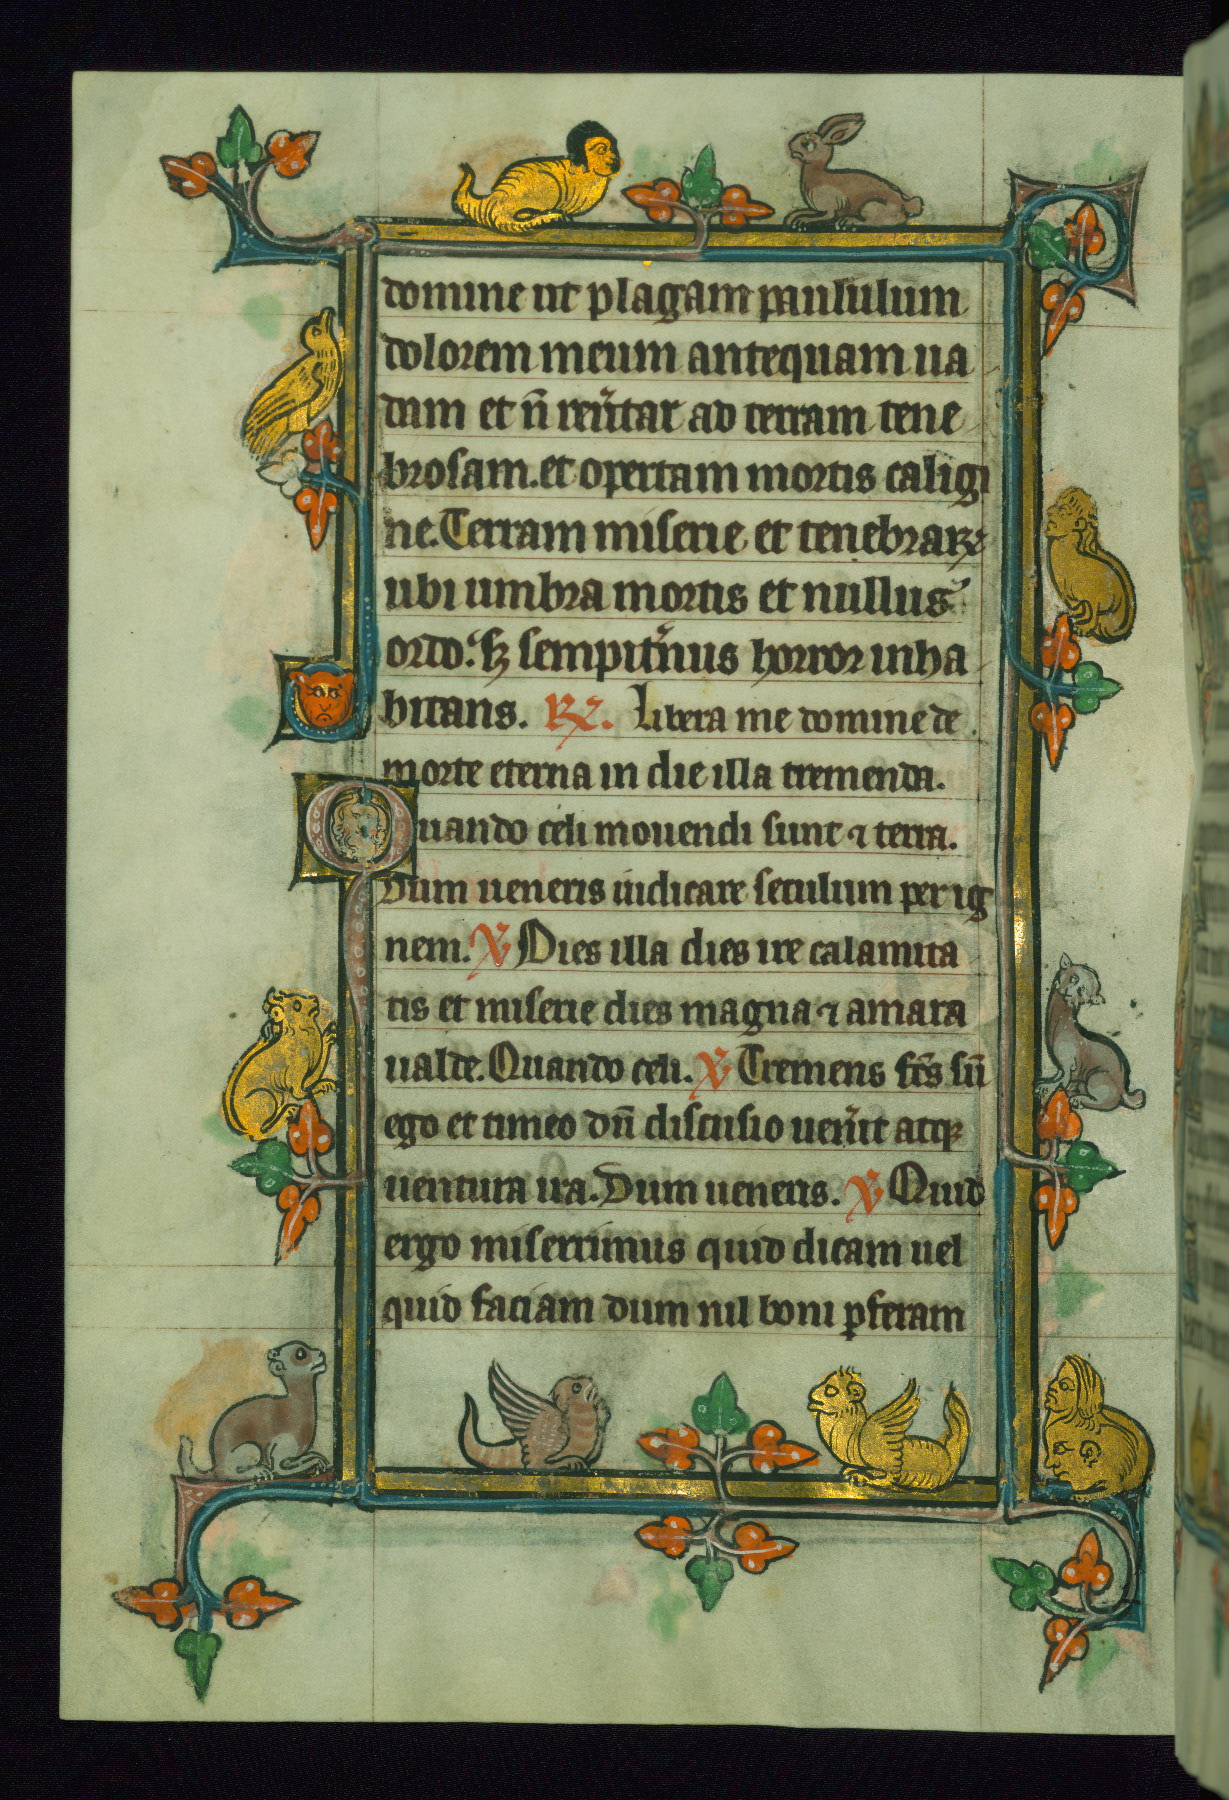 domine ut plagam paululum
dolorem meum antequam ua
dam et n̄ reu͛tar ad terram tene
brosam. et opertam mortis caligi
ne. Terram miserie et tenebraꝝ
ubi umbra mortis et nullus
ordo. sꝫ sempit͛nus horror inha
bitans. ℞. Libera me domine de
morte eterna in die illa tremenda.
Quando celi mouendi sunt ⁊ terra.
Dum ueneris iudicare seculum per ig
nem. ℣ Dies illa dies ire calamita
tis et miserie dies magna ⁊ amara
ualde. Quando celi. ℣ Tremens fc̄s sū
ego et timeo dū discusio uen͛it atqꝫ
uentura ira. Dum ueneris. ℣ Quid
ergo miserrimus quid dicam uel
quid faciam dum nil boni ꝑferam